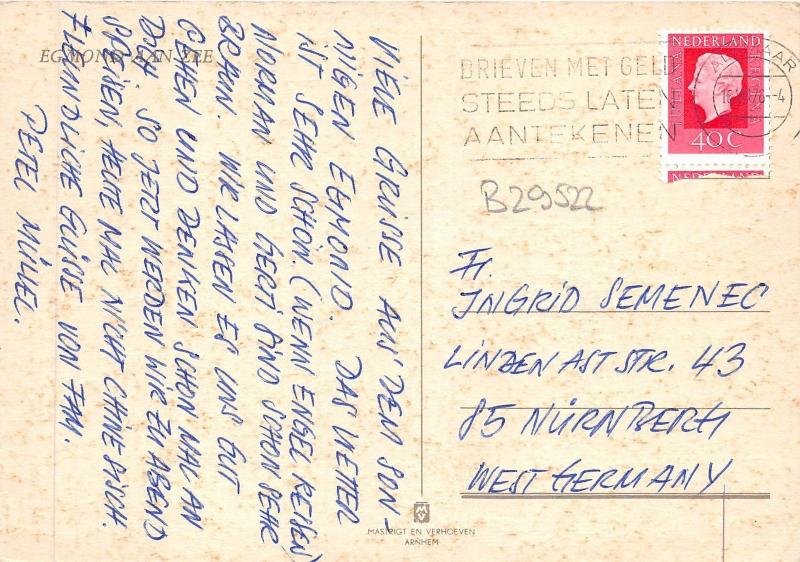 EGMOND AAN ZEE
VIELE GRÜSSE AUS DEM SON-
NIGEN EGMOND. DAS WETTER
IST SEHR SCHÖN. (WENN ENGEL REISEN)
NORMAN UND GERTI SIND SCHON SEHR
BRAUN. WIR LASSEN ES UNS GUT
GEHEN UND DENKEN SCHON MAL AN
DICH. SO JETZT WERDEN WIR ZU ABEND
SPEISEN, HEUTE MAL NICHT CHINESISCH.
FREUNDLICHE GRÜSSE VON FAM.
PETER
BRIEVEN MET GELD
STEEDS LATEN
AANTEKENEN
NEDERLAND
JULIANA REGINA
40C
NEDERLAND
B29522
Fr.
INGRID SEMENEC
LINDENASTSTR. 43
85 NÜRNBERG
WEST GERMANY
MASTRIGT EN VERHOEVEN
ARNHEM